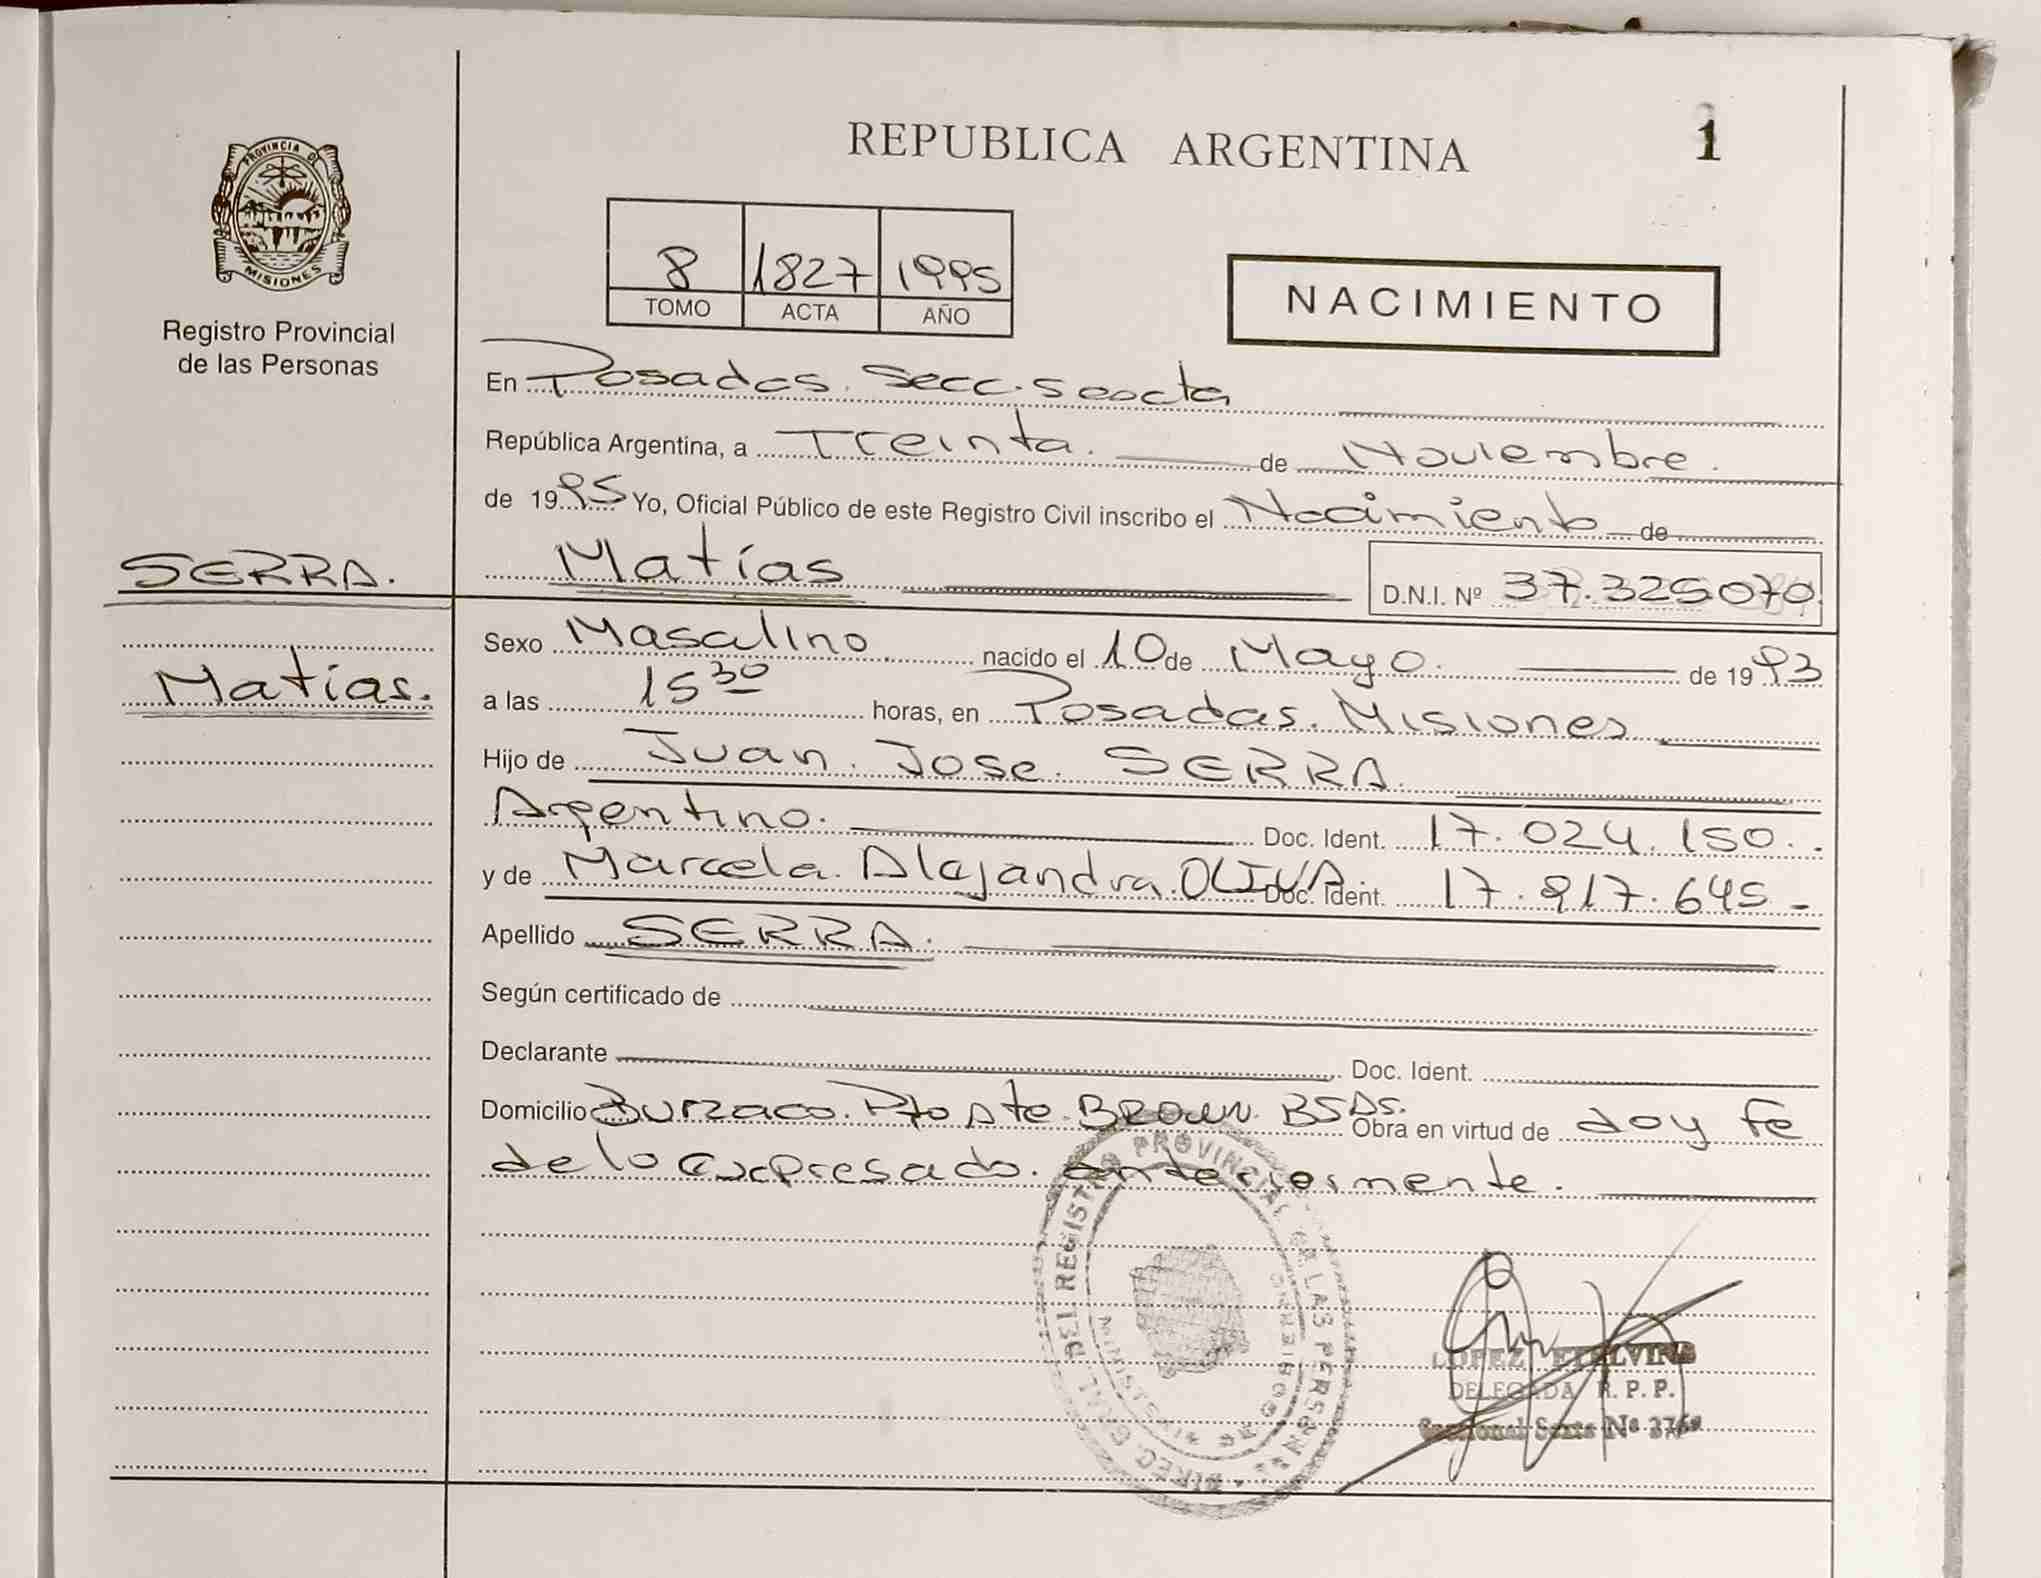 REPUBLICA ARGENTINA
1
PROVINCIA DE
MISIONES
Registro Provincial
de las Personas
8 1827 1995
TOMO ACTA AÑO
NACIMIENTO
En Posadas. Secc. Sexta
República Argentina, a Treinta. de Noviembre.
de 1995 Yo, Oficial Público de este Registro Civil inscribo el Nacimiento de
SERRA.
Matías
D.N.I. Nº 37.325070.
Matías.
Sexo Masculino nacido el 10 de Mayo. de 1993
a las 15 30 horas, en Posadas. Misiones
Hijo de Juan. Jose. SERRA.
Argentino. Doc. Ident. 17.024.150.
y de Marcela. Alejandra. OLIVA. Doc. Ident. 17.917.645-
Apellido SERRA.
Según certificado de
Declarante Doc. Ident.
Domicilio Burzaco. Pto Ate. Brown. BSAS. Obra en virtud de doy fe
de lo expresado. anteriormente.
DIREC. GRAL. DEL REGISTRO PROVINCIAL DE LAS PERSONAS
LOPEZ ETELVINA
DELEGADA R. P. P.
Seccional Sexta Nº